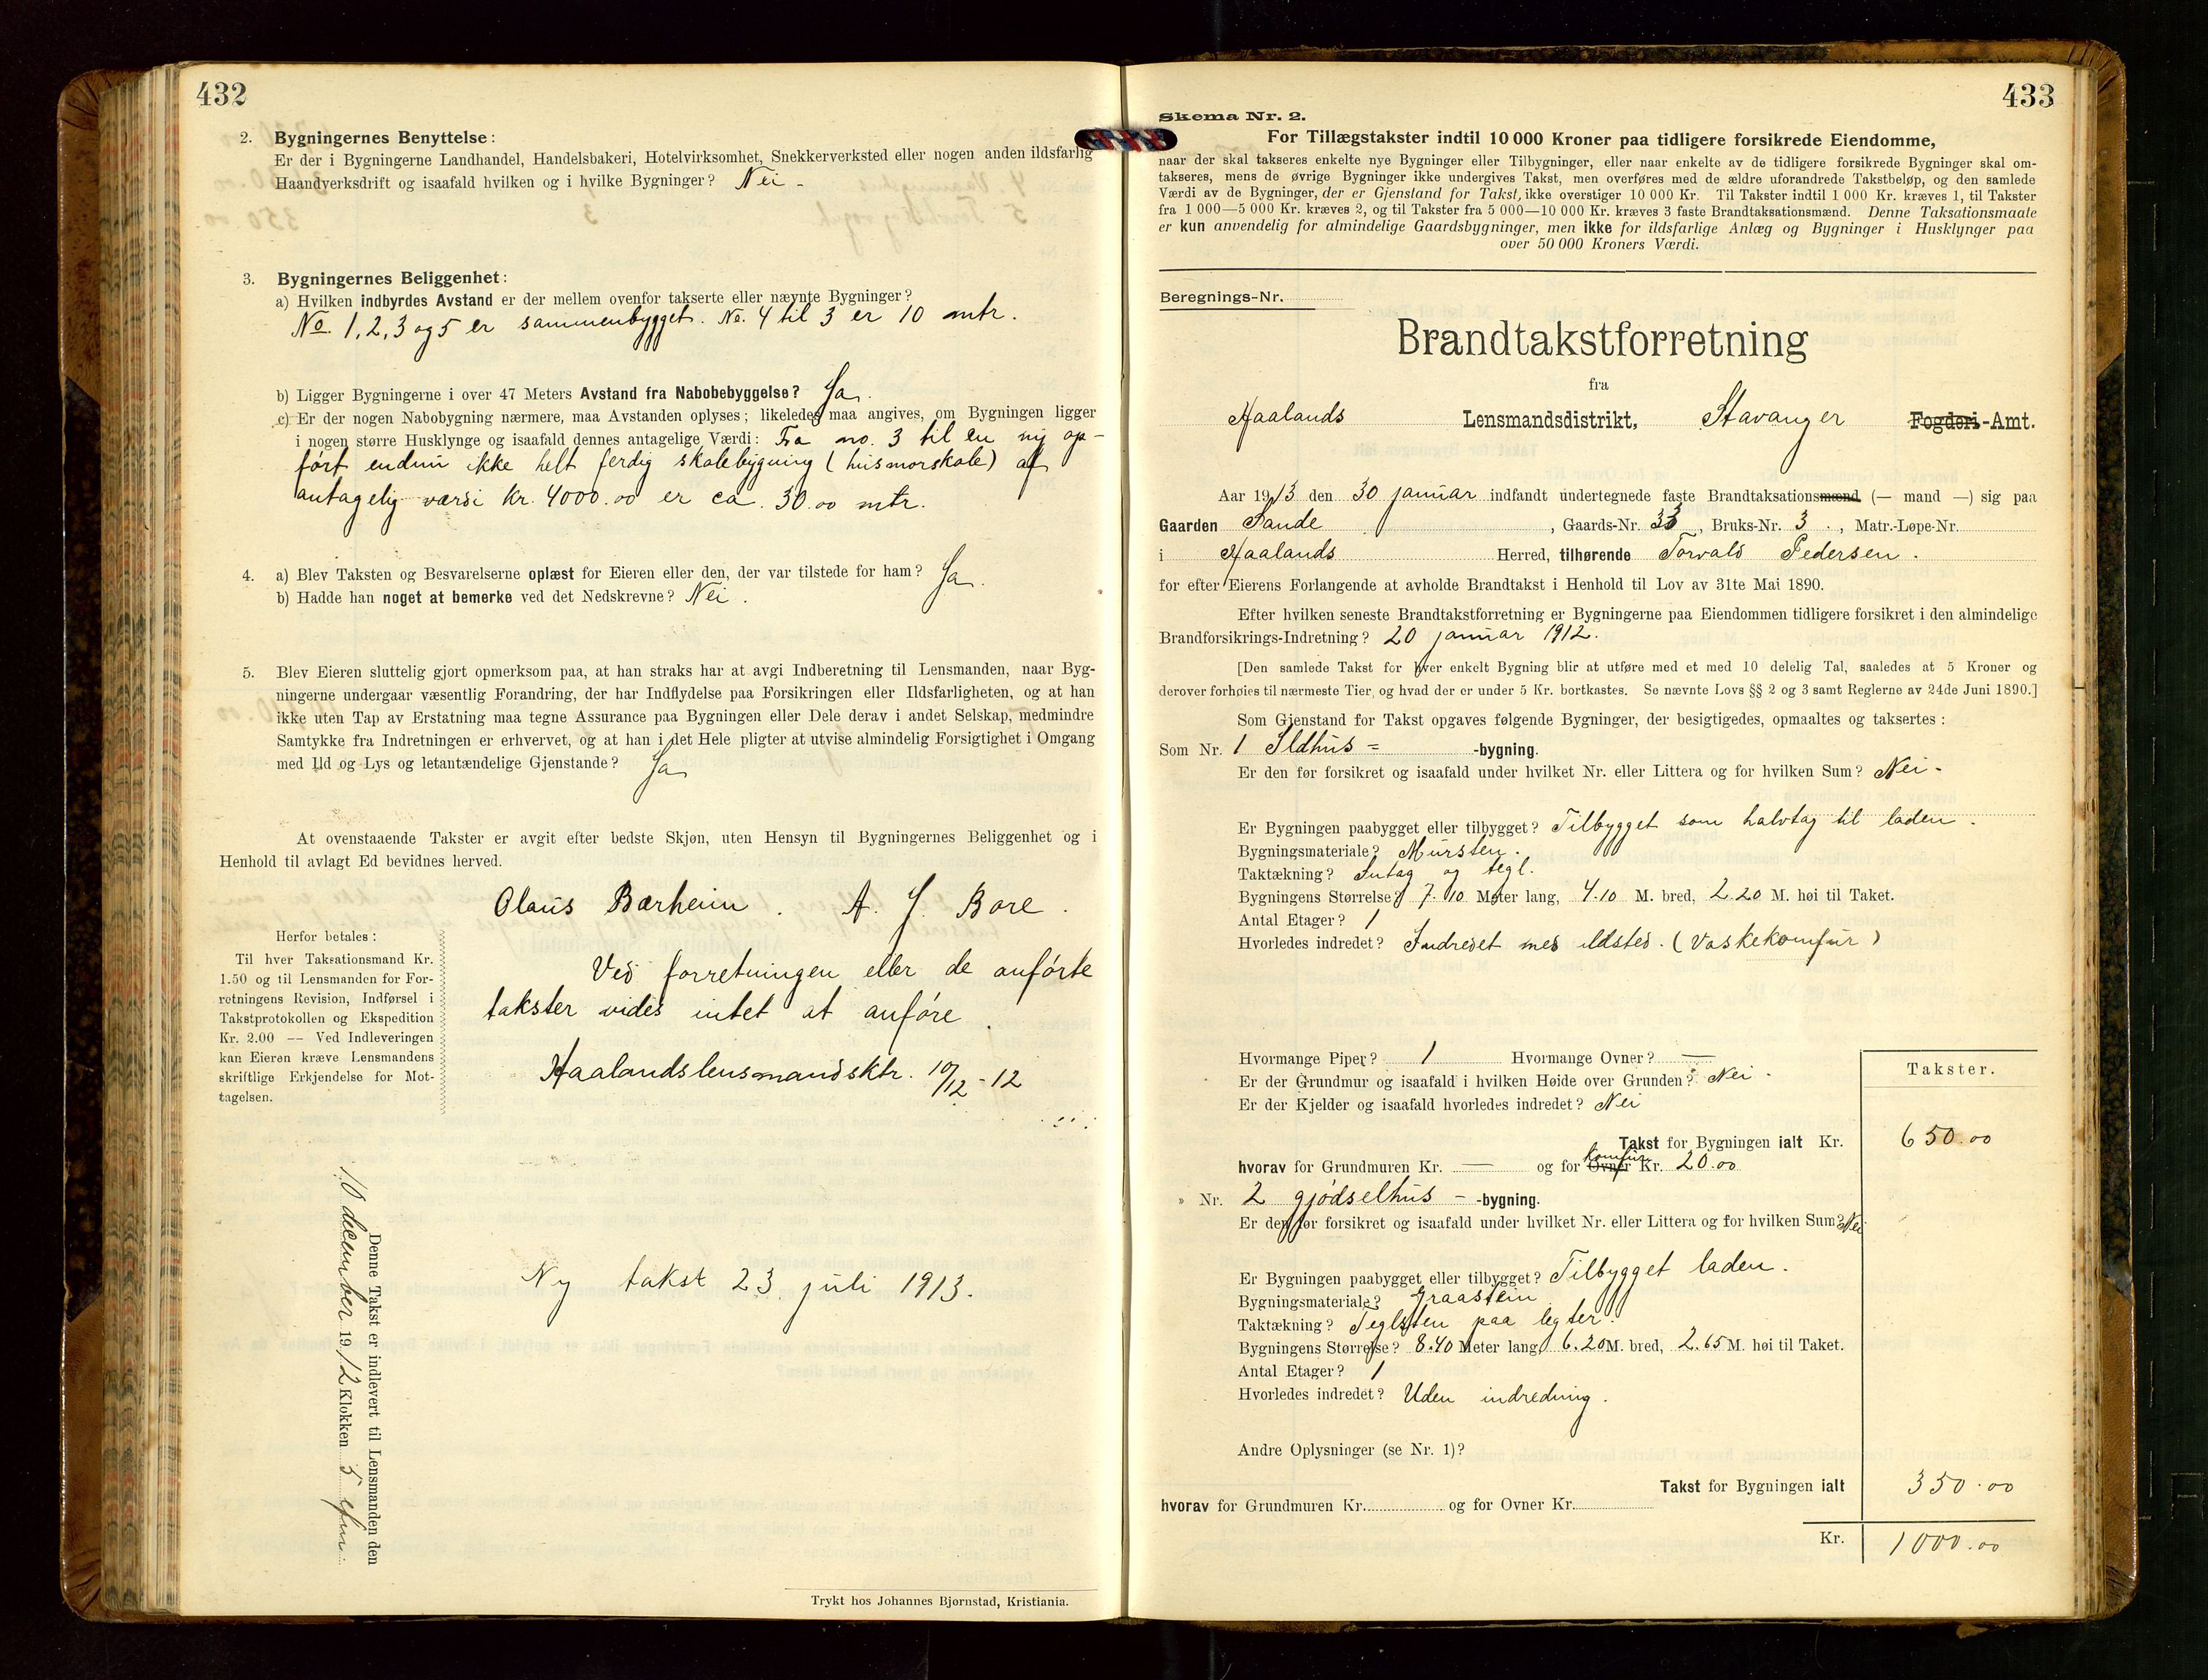 432
2. Bygningernes Benyttelse:
Er der i Bygningerne Landhandel, Handelsbakeri, Hotelvirksomhet, Snekkerverksted eller nogen anden ildsfarlig
Haandverksdrift og isaafald hvilken og i hvilke Bygninger? Nei -
3. Bygningernes Beliggenhet:
a) Hvilken indbyrdes Avstand er der mellem ovenfor takserte eller nævnte Bygninger?
No. 1, 2, 3 og 5 er sammenbygget. No. 4 til 3 er 10 mtr.
b) Ligger Bygningerne i over 47 Meters Avstand fra Nabobebyggelse? Ja.
c) Er der nogen Nabobygning nærmere, maa Avstanden oplyses; likeledes maa angives, om Bygningen ligger
i nogen større Husklynge og isaafald dennes antagelige Værdi: Fra no. 3 til en ny op-
ført endnu ikke helt ferdig skolebygning (husmorskole) af
antagelig værdi kr. 4000.00 er ca. 30.00 mtr.
4. a) Blev Taksten og Besvarelserne oplæst for Eieren eller den, der var tilstede for ham? Ja.
b) Hadde han noget at bemerke ved det Nedskrevne? Nei.
5. Blev Eieren sluttelig gjort opmerksom paa, at han straks har at avgi Indberetning til Lensmanden, naar Byg-
ningerne undergaar væsentlig Forandring, der har Indflydelse paa Forsikringen eller Ildsfarligheten, og at han
ikke uten Tap av Erstatning maa tegne Assurance paa Bygningen eller Dele derav i andet Selskap, medmindre
Samtykke fra Indretningen er erhvervet, og at han i det Hele pligter at utvise almindelig Forsigtighet i Omgang
med Ild og Lys og letantændelige Gjenstande? Ja
At ovenstaaende Takster er avgit efter bedste Skjøn, uten Hensyn til Bygningernes Beliggenhet og i
Henhold til avlagt Ed bevidnes herved.
Olaus Bærheim. A. J. Bore.
Herfor betales:
Til hver Taksationsmand Kr.
1.50 og til Lensmanden for For-
retningens Revision, Indførsel i
Takstprotokollen og Ekspedition
Kr. 2.00 -- Ved Indleveringen
kan Eieren kræve Lensmandens
skriftlige Erkjendelse for Mot-
tagelsen.
Ved forretningen eller de anførte
takster vides intet at anføre.
Haalandslensmandsktr. 10/12 - 12
Denne Takst er indlevert til Lensmanden den
10 december 1912 Klokken 5 efm.
Ny takst 23 juli 1913.
Trykt hos Johannes Bjørnstad, Kristiania.
433
Skema Nr. 2.
For Tillægstakster indtil 10 000 Kroner paa tidligere forsikrede Eiendomme,
naar der skal takseres enkelte nye Bygninger eller Tilbygninger, eller naar enkelte av de tidligere forsikrede Bygninger skal om-
takseres, mens de øvrige Bygninger ikke undergives Takst, men overføres med de ældre uforandrede Takstbeløp, og den samlede
Værdi av de Bygninger, der er Gjenstand for Takst, ikke overstiger 10 000 Kr. Til Takster indtil 1 000 Kr. kræves 1, til Takster
fra 1 000—5 000 Kr. kræves 2, og til Takster fra 5 000—10 000 Kr. kræves 3 faste Brandtaksationsmænd. Denne Taksationsmaate
er kun anvendelig for almindelige Gaardsbygninger, men ikke for ildsfarlige Anlæg og Bygninger i Husklynger paa
over 50 000 Kroners Værdi.
Beregnings-Nr.
Brandtakstforretning
fra
Haalands Lensmandsdistrikt, Stavanger Fogderi-Amt.
Aar 1913 den 30 januar indfandt undertegnede faste Brandtaksationsmænd (— mand —) sig paa
Gaarden Sande, Gaards-Nr. 33, Bruks-Nr. 3., Matr.-Løpe-Nr.
i Haalands Herred, tilhørende Torvald Pedersen.
for efter Eierens Forlangende at avholde Brandtakst i Henhold til Lov av 31te Mai 1890.
Efter hvilken seneste Brandtakstforretning er Bygningerne paa Eiendommen tidligere forsikret i den almindelige
Brandforsikrings-Indretning? 20 januar 1912.
[Den samlede Takst for hver enkelt Bygning blir at utføre med et med 10 delelig Tal, saaledes at 5 Kroner og
derover forhøies til nærmeste Tier, og hvad der er under 5 Kr. bortkastes. Se nævnte Lovs §§ 2 og 3 samt Reglerne av 24de Juni 1890.]
Som Gjenstand for Takst opgaves følgende Bygninger, der besigtigedes, opmaaltes og taksertes:
Som Nr. 1 Ildhus = -bygning.
Er den før forsikret og isaafald under hvilket Nr. eller Littera og for hvilken Sum? Nei -
Er Bygningen paabygget eller tilbygget? Tilbygget som halvtag til laden.
Bygningsmateriale? Mursten.
Taktækning? Sutag og tegl.
Bygningens Størrelse? 7.10 Meter lang, 4.10 M. bred, 2.20 M. høi til Taket.
Antal Etager? 1
Hvorledes indredet? Indredet med ildsted. (Vaskekomfur)
Hvormange Piper? 1 Hvormange Ovner? —
Er der Grundmur og isaafald i hvilken Høide over Grunden? Nei.
Er der Kjelder og isaafald hvorledes indredet? Nei
Takster.
Takst for Bygningen ialt Kr. 650.00
hvorav for Grundmuren Kr. — og for Ovner komfur Kr. 20.00
» Nr. 2 gjødselhus - -bygning.
Er den før forsikret og isaafald under hvilket Nr. eller Littera og for hvilken Sum? Nei
Er Bygningen paabygget eller tilbygget? Tilbygget laden.
Bygningsmateriale? Graastein
Taktækning? Teglsten paa legter.
Bygningens Størrelse? 8.40 Meter lang, 6.20 M. bred, 2.65 M. høi til Taket.
Antal Etager? 1
Hvorledes indredet? Uden indredning.
Andre Oplysninger (se Nr. 1)?
Takst for Bygningen ialt 350.00
hvorav for Grundmuren Kr. og for Ovner Kr.
Kr. 1000.00